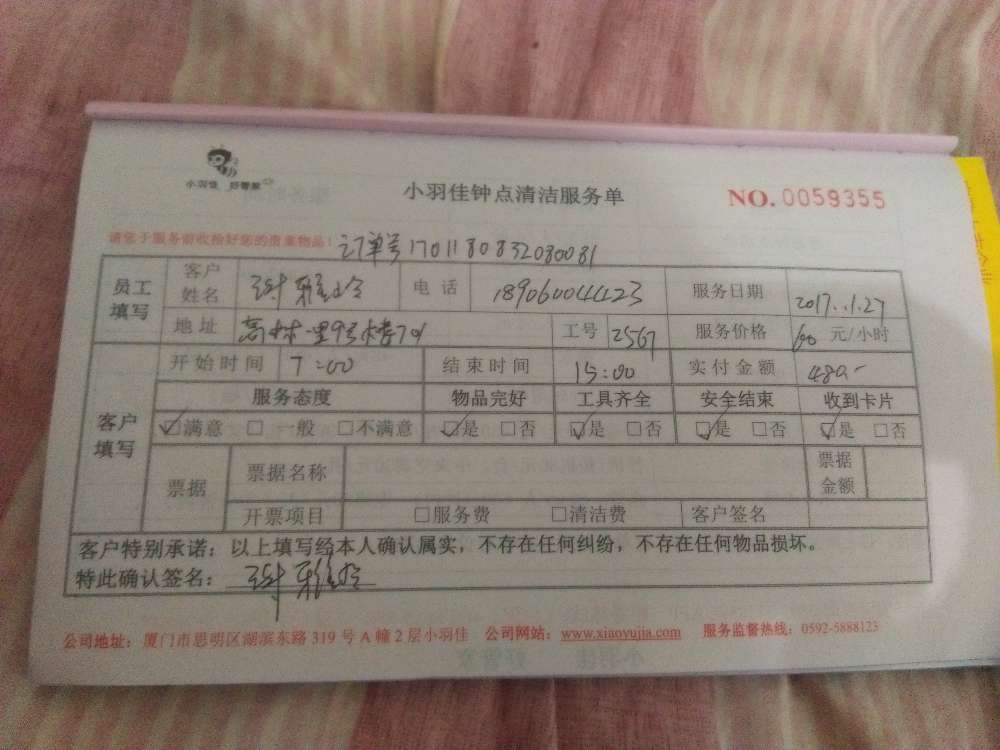 小羽佳 好管家
小羽佳钟点清洁服务单
NO. 0059355
请您于服务前收拾好您的贵重物品!
订单号1701180832080081
员工填写 客户姓名 谢雅玲 电话 18906004423 服务日期 2017.1.27
地址 高林一里9号楼701 工号 2567 服务价格 60 元/小时
客户填写 开始时间 7:00 结束时间 15:00 实付金额 480.-
服务态度 物品完好 工具齐全 安全结束 收到卡片
☑满意 □一般 □不满意 ☑是 □否 ☑是 □否 ☑是 □否 ☑是 □否
票据 票据名称 票据金额
开票项目 □服务费 □清洁费 客户签名
客户特别承诺:以上填写经本人确认属实,不存在任何纠纷,不存在任何物品损坏。
特此确认签名: 谢雅玲
公司地址:厦门市思明区湖滨东路319号A幢2层小羽佳 公司网站:www.xiaoyujia.com 服务监督热线:0592-5888123